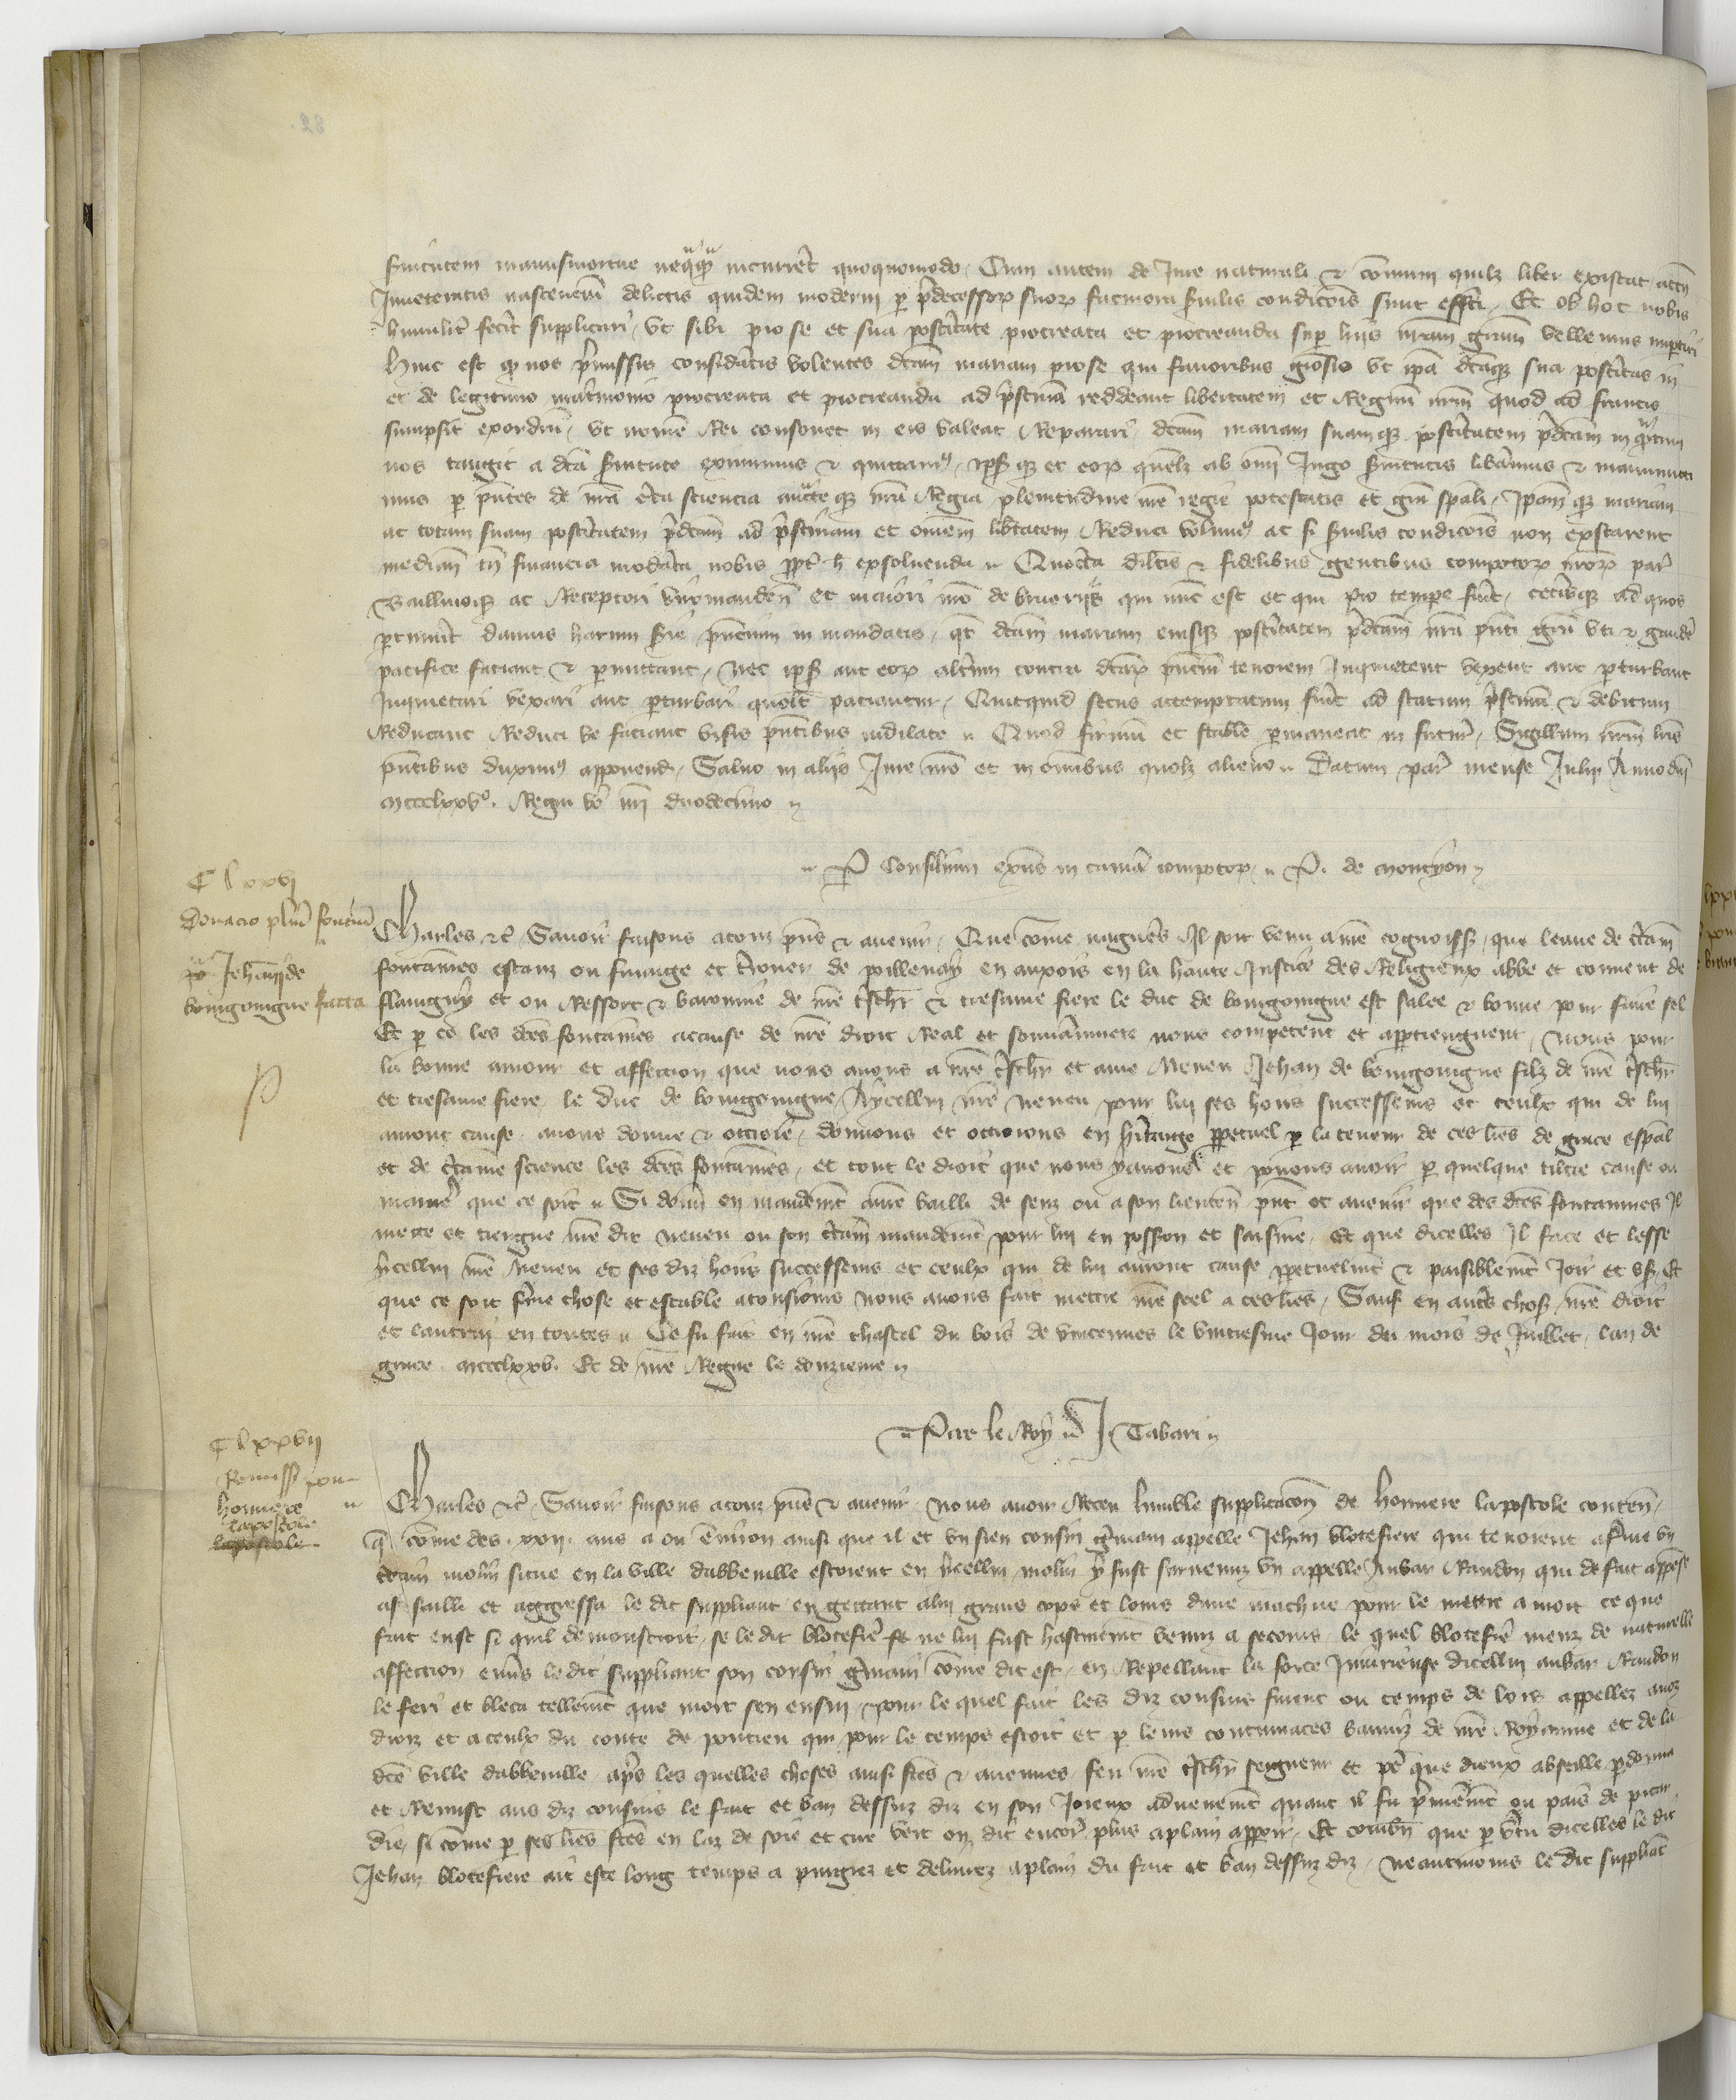 servitutem manusmortue neququam incurrēt quoquomodo. Cum autem de Iure naturali & cōmuni quilz liber existat actū
Inveteratis delictis quidem moderni per p̄decessor suor facinora s̄vilis condicōis sunt effcti. Et ob hoc nobis
humilit̄ fecit supplicari, ut sibi pro se et sua post̄itate procreata et procreanda sup hiis nrām grām vellemus impartiri
Hinc est q̄ nos p̄missis consid̄atis volentes dc̄am mariam prose qui favoribus grōsis ut ipā dc̄aq̄ sua post̄itas in
et de legitimo mat̄imonio procreata et procreanda ad p̄stinā reddeant libertatem et Regnū nrm̄ quod ad francis
sumpsit exordiū, ut nomē Rei consonet in eis valeat Reparari, dc̄am mariam suamq̄ post̄itatem p̄dc̄am inq̄ntum
nos tangit a dc̄a s̄vitute eximimus & quittamꝯ, ipsq̄ et eor quēlz ab om̄i Iugo s̄vitutis lib̄amus & manumitti
mus per p̄ntes de nrā c̄ta sciencia auc̄teq̄ nrā Regia plenitudine nrē regie potestatis et grā sp̄ali. Ipamq̄ mariam
ac totam suam post̄itatem p̄dc̄am ad p̄stinam et om̄em lib̄tatem Reduci volumꝯ ac si s̄vilis condicōis non exstarent
median tn̄ financia mod̄ata nobis ppt̄ h exsolvenda. Quoc̄ca dilc̄is & fidelibus gentibus compotor nror par̄
Baillivoq̄ ac Receptori virōmanden̄ et maiori nrō de bruerijs qui nūc est et qui pro tempe fūit, cet̄isq̄ ad quos
p̄tinuit damus harum s̄ie p̄ncium in mandatis, qt̄ dc̄am mariam eiusq̄ post̄itatem p̄dc̄am nrā p̄nti grā uti & gaudē
pacifice faciant & p̄mittant, nec ips aut eor alt̄um contra dc̄ar p̄nciū tenorem Inquietent vexent aut p̄turbent
Inquietari vexari aut p̄turbari quol̄t paciantur. Quicquid secus attemptatum fūit ad statum p̄stinū & debitum
Reducant Reduci ve faciant visis p̄ntibus indilate. Quod firmū et stabile p̄maneat in futur̄, Sigillum nrm̄ lrīs
p̄ntibus duximꝯ apponend̄, Salvo in alijs Iure nrō et in om̄ibus quolz alieno. Datum par̄ mense Iulij Anno dn̄i
mccclxxvᵒ. Regni vō nrī duodecimo
P Consilium exns̄ in cam̄a compotor. P. de montyon
Clxxvi
Donacio plīū fontiū
p̄ Jehānī de
bourgoingne facta
Charles &c̄. Savoir faisons atouz p̄ns & avenir, Que cōme nagūes Il soit venu a nrē cognoiss, que leaue de c̄tain̄
fontaines estanz ou finaige et t̄rouer de poillenay en auxois en la haute Justice des Religieux abbe et convent de
flavigny et ou Ressort & baronnie de nrē t̄sch̄r & tresame frere le duc de bourgoingne est salee & bonne pour faire sel
Et p ce les dc̄es fontaines acause de nrē droit Real et souv̄ainnete nous competent et app̄tiengnent, Nous pour
la bonne amour et affection que nous avons a nrē t̄sch̄r et ame Neveu Jehan de bourgoingne filz de nrē t̄sch̄r
et tresame frere le duc de bourgoingne, Aycellui nrē neveu pour lui ses hoirs successeurs et ceulx qui de lui
auront cause, avons donne & octroie, donnons et octroions en hīt̄age ppetuel p la teneur de ces lres de grace esp̄al
et de c̄taine science les dc̄es fontaines, et tout le droit que nous y avons et povons avoir p quelque tiltre cause ou
manie᷑ que ce soit. Si donn̄ en mandem̄t a nrē bailli de senz ou a son lieuten̄ p̄nt et avenir que des dc̄es fontaines Il
mette et tiengne nrē dit neveu ou son c̄tain mandem̄t pour lui en poss̄ion et saisine, Et que dicelles Il face et lesse
ycellui nrē Neveu et ses diz hoirs successeurs et ceulx qui de lui auront cause ppetuelm̄t & paisiblem̄t Joir et us. Et
que ce soit f̄me chose et estable atousiours Nous avons fait mettre nrē seel a ces lres, Sauf en aut̄es chos nrē droit
et lautrui en toutes. Ce fu fait en nrē chastel du bois de vincennes le vintiesme Jour du mois de Juillet, lan de
grace mccclxxv. Et de nrē Regne le douzieme
Par le Roy J. Tabari
Clxxvii
Remiss pour
honnere
lapostole
lapostole
Charles &c̄. Savoir faisons atouz p̄ns & avenir, Nous avoir Receu humble supplicacōn de Honnere lapostole conten̄,
q̄ cōme des. xxii. ans a ou ēviron ainsi que il et un sien cousin ḡmain appelle Jehan blotefiere qui tenoient afrme un
c̄tain molin situe en la ville dabbeville estoient en ycellui molin y fust sorvenuz un appelle Aubar Randon qui de fait appense
as sailli et aggressa le dit suppliant en gettant alui grans cops et lours dune machue pour le mettre a mort ce que
fait eust si quil demonstroit, se le dit blotefiē ne lui fust hastivem̄t venuz a secours. le quel blotefiē meuz de naturelle
affection ēv̄s le dit suppliant son cousin ḡmain cōme dit est, en Repellant la force Injurieuse dicellui aubar Randon
le feri et bleca tellem̄t que mort sen ensui, pour le quel fait les diz cousins furent ou temps de lors appellez anoz
droiz et a ceulx du conte de pontieu qui pour le temps estoit et p leurs contumaces banniz de nrē Royaume et de la
dc̄e ville dabbeville, ap̄s les quelles choses ainsi fc̄es & avenues, feu nrē t̄sch̄r seigneur et pē que dieux absoille p̄donna
et Remist aus diz cousins le fait et ban dessuz diz en son Joieux advenem̄t quant il fu p̄mierem̄t ou pais de picar
die, si cōme p ses lres fc̄es en laz de soie et cire vert on dit encor plus aplain apparoir, Et combn̄ que p v̄tu dicelles le dit
Jehan blotefiere ait este long temps a purgiez et delivrez aplain du fait et ban dessuz diz, neantmoins le dit suppliāt